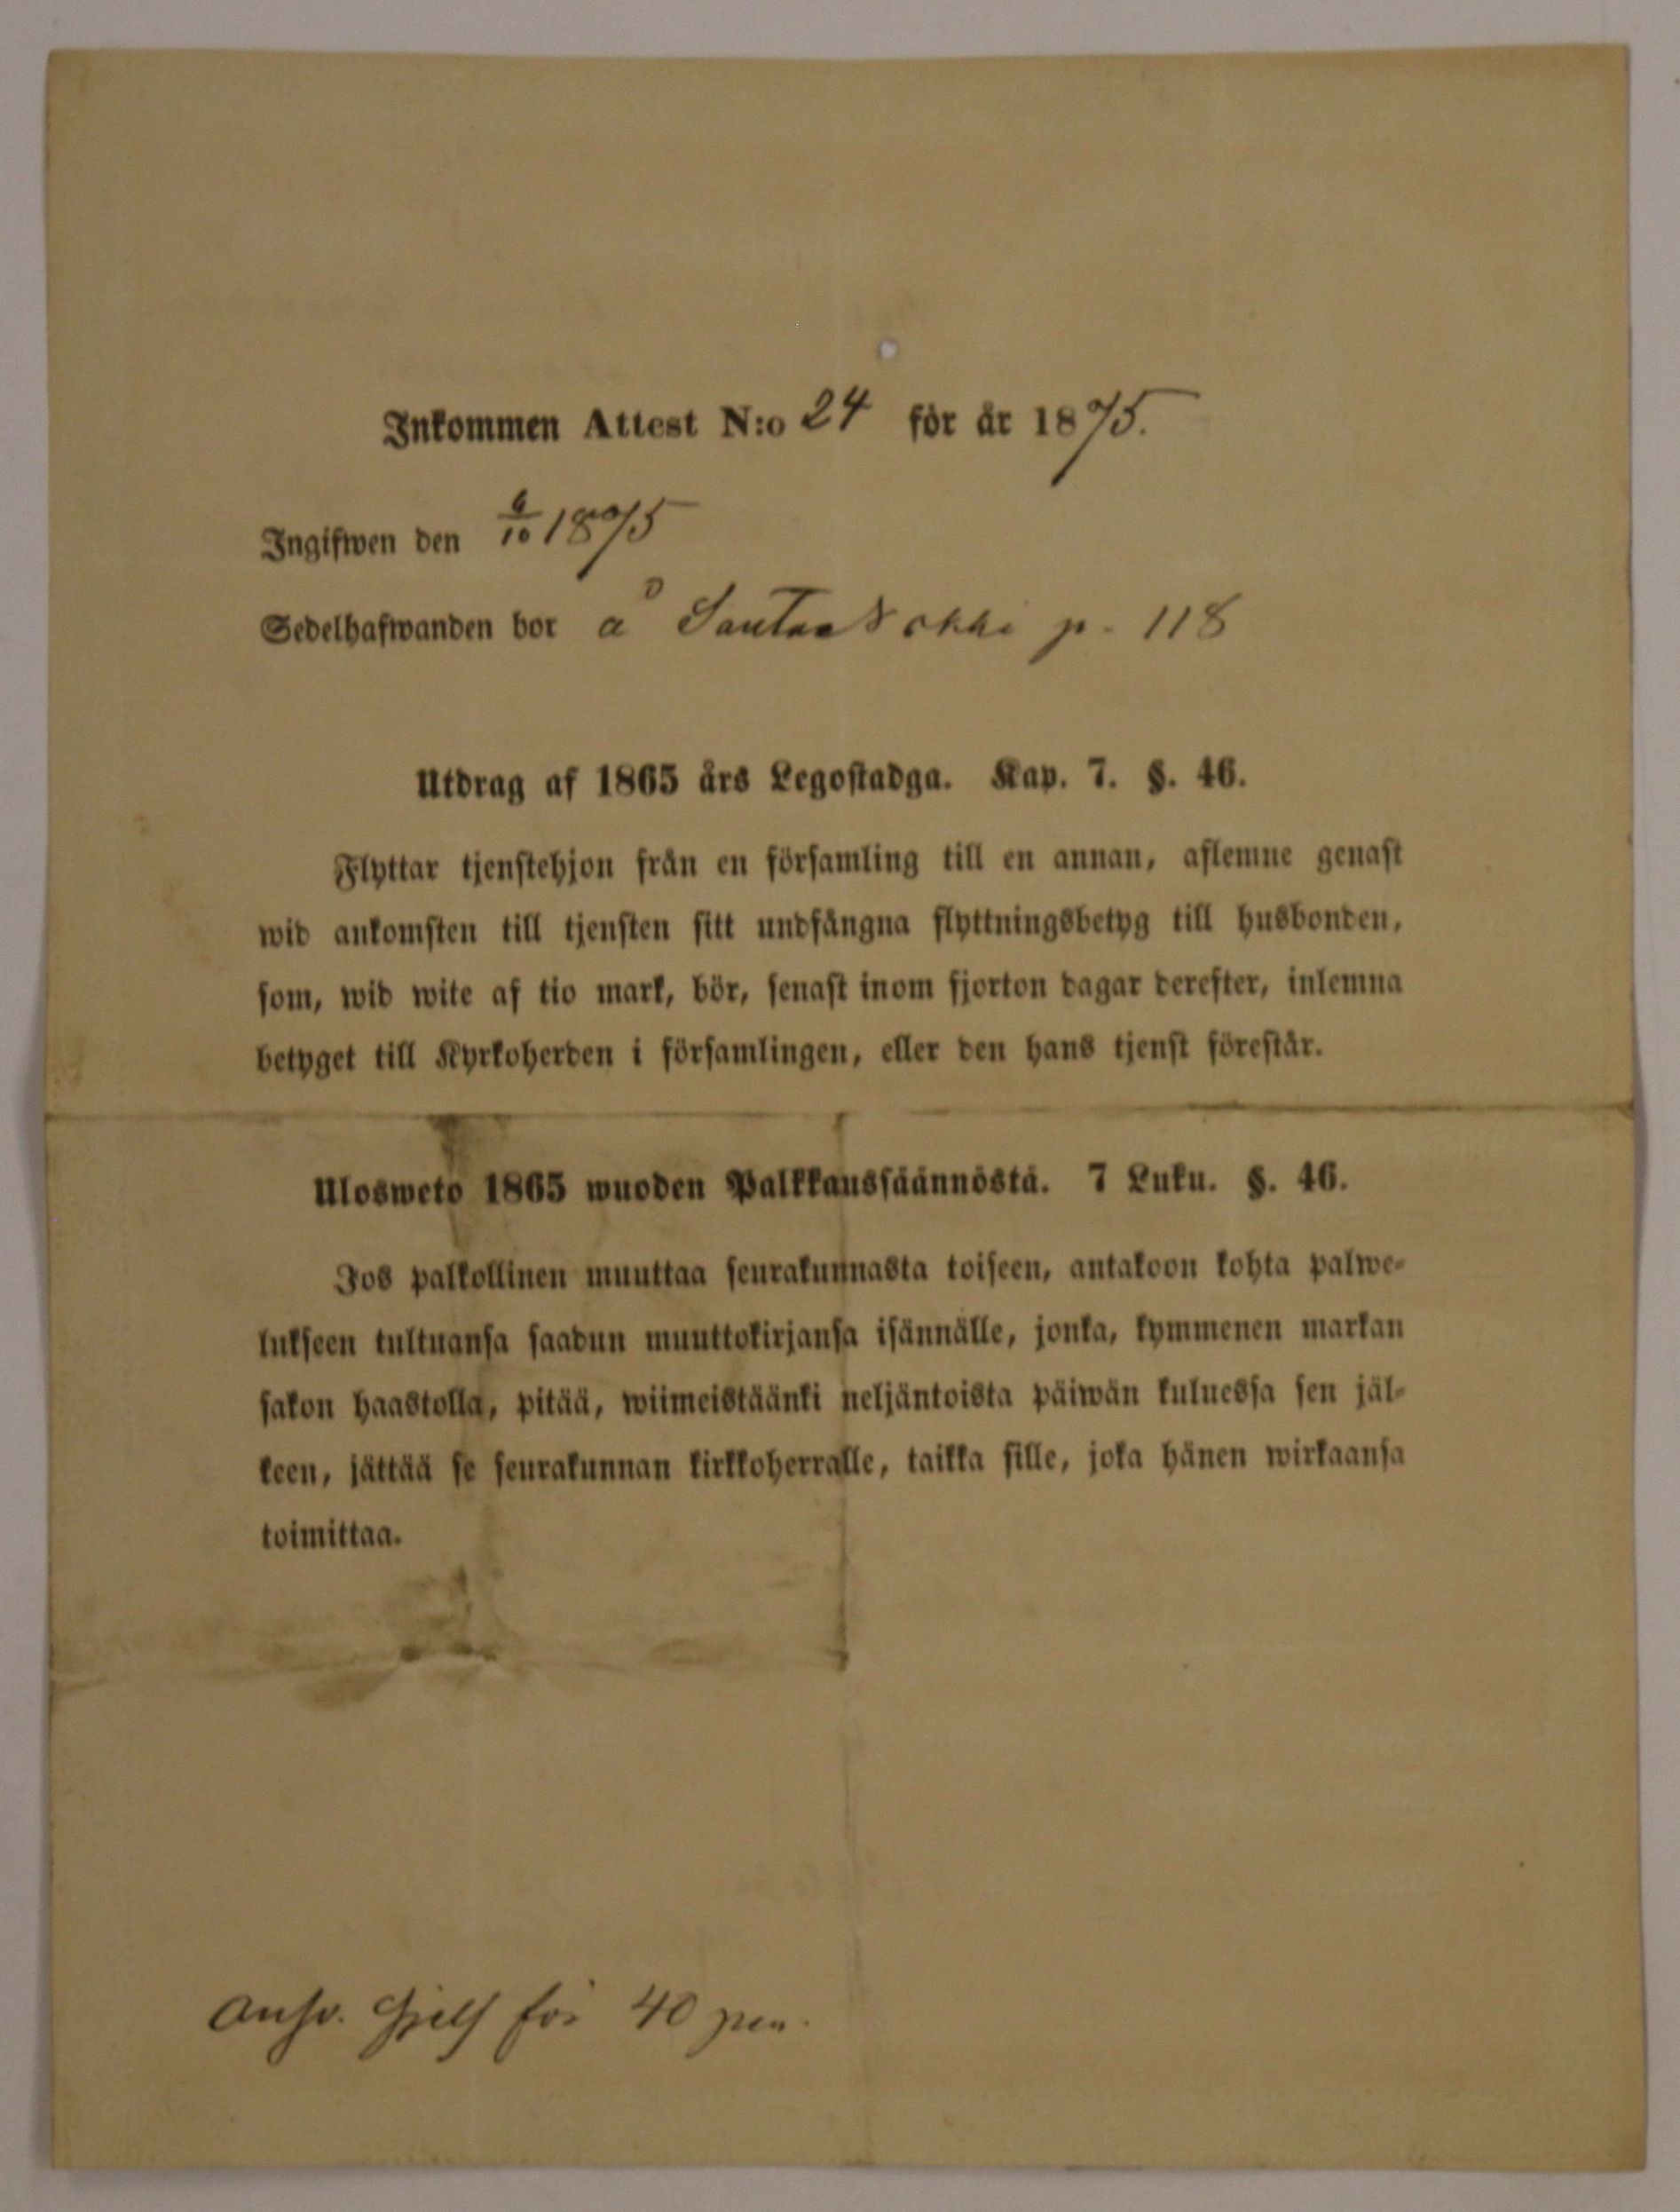 Inkommen Attest N:o 24 för år 1875.
Ingifwen den 6/10 1875
Sedelhafwanden bor å p. 118
Utdrag af 1865 års Legostadga. Kap. 7. §. 46.
Flyttar tjenstehjon från en församling till en annan, aflemne genast
wid ankomsten till tjensten sitt undfångna flyttningsbetyg till husbonden,
som, wid wite af tio mark, bör, senast inom fjorton dagar derefter, inlemna
betyget till Kyrkoherden i församlingen, eller den hans tjenst förestår.
Ulosweto 1865 wuoden Palkkaussäännöstä. 7 Luku. §. 46.
Jos palkollinen muuttaa seurakunnasta toiseen, antakoon kohta palwe-
lukseen tultuansa saadun muuttokirjansa isännälle, jonka, kymmenen markan
sakon haastolla, pitää, wiimeistäänki neljäntoista päiwän kuluessa sen jäl-
keen, jättää se seurakunnan kirkkoherralle, taikka sille, joka hänen wirkaansa
toimittaa.
Answ. Sjelf för 40 pen.